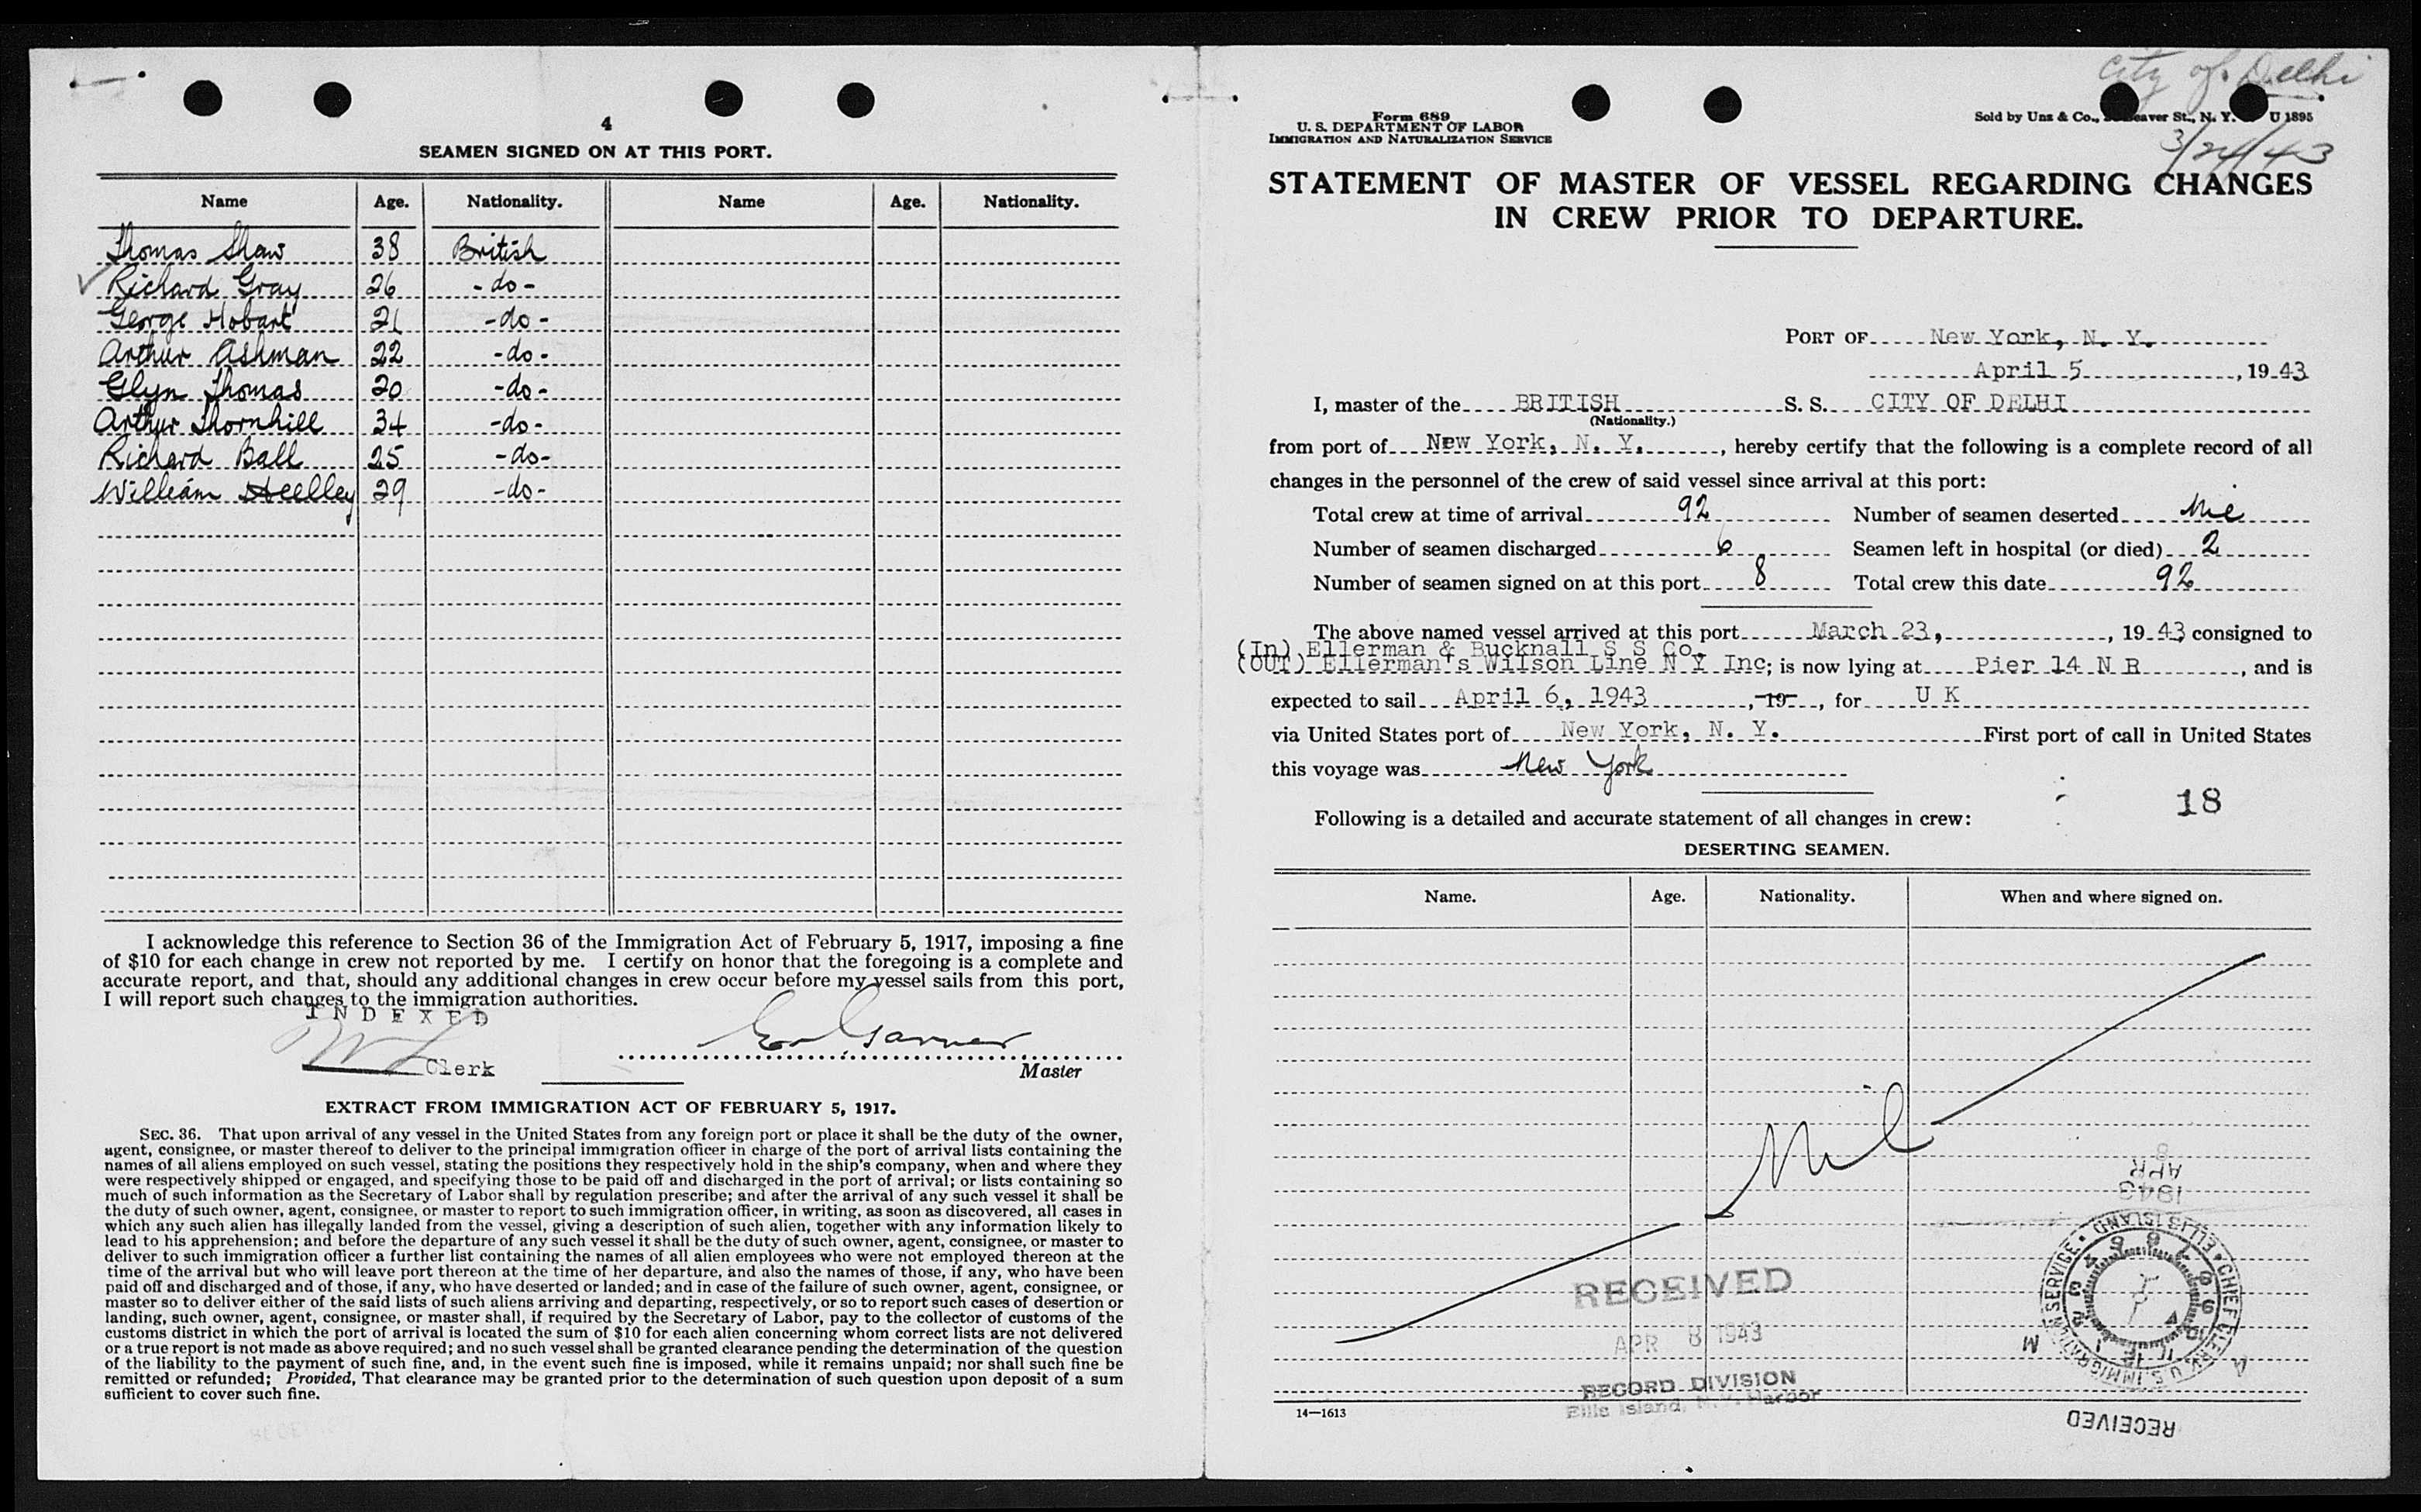 4
SEAMEN SIGNED ON AT THIS PORT.
Name Age. Nationality. Name Age. Nationality.
Thomas Shaw 38 British
Richard Gray 26 -do-
George Hobart 21 -do-
Arthur Ashman 22 -do-
Glyn Thomas 20 -do-
Arthur Thornhill 34 -do-
Richard Ball 25 -do-
William 29 -do-
I acknowledge this reference to Section 36 of the Immigration Act of February 5, 1917, imposing a fine
of $10 for each change in crew not reported by me. I certify on honor that the foregoing is a complete and
accurate report, and that, should any additional changes in crew occur before my vessel sails from this port,
I will report such changes to the immigration authorities.
INDEXED
Clerk
Garner
Master
EXTRACT FROM IMMIGRATION ACT OF FEBRUARY 5, 1917.
SEC. 36. That upon arrival of any vessel in the United States from any foreign port or place it shall be the duty of the owner,
agent, consignee, or master thereof to deliver to the principal immigration officer in charge of the port of arrival lists containing the
names of all aliens employed on such vessel, stating the positions they respectively hold in the ship's company, when and where they
were respectively shipped or engaged, and specifying those to be paid off and discharged in the port of arrival; or lists containing so
much of such information as the Secretary of Labor shall by regulation prescribe; and after the arrival of any such vessel it shall be
the duty of such owner, agent, consignee, or master to report to such immigration officer, in writing, as soon as discovered, all cases in
which any such alien has illegally landed from the vessel, giving a description of such alien, together with any information likely to
lead to his apprehension; and before the departure of any such vessel it shall be the duty of such owner, agent, consignee, or master to
deliver to such immigration officer a further list containing the names of all alien employees who were not employed thereon at the
time of the arrival but who will leave port thereon at the time of her departure, and also the names of those, if any, who have been
paid off and discharged and of those, if any, who have deserted or landed; and in case of the failure of such owner, agent, consignee, or
master so to deliver either of the said lists of such aliens arriving and departing, respectively, or so to report such cases of desertion or
landing, such owner, agent, consignee, or master shall, if required by the Secretary of Labor, pay to the collector of customs of the
customs district in which the port of arrival is located the sum of $10 for each alien concerning whom correct lists are not delivered
or a true report is not made as above required; and no such vessel shall be granted clearance pending the determination of the question
of the liability to the payment of such fine, and, in the event such fine is imposed, while it remains unpaid; nor shall such fine be
remitted or refunded; Provided, That clearance may be granted prior to the determination of such question upon deposit of a sum
sufficient to cover such fine.
City of Delhi
Form 689
U. S. DEPARTMENT OF LABOR
IMMIGRATION AND NATURALIZATION SERVICE
Sold by Unz & Co., Beaver St., N. Y. U 1895
3/24/43
STATEMENT OF MASTER OF VESSEL REGARDING CHANGES
IN CREW PRIOR TO DEPARTURE.
PORT OF New York, N. Y.
April 5, 1943
I, master of the BRITISH S. S. CITY OF DELHI
(Nationality.)
from port of New York, N. Y., hereby certify that the following is a complete record of all
changes in the personnel of the crew of said vessel since arrival at this port:
Total crew at time of arrival 92 Number of seamen deserted Nil
Number of seamen discharged 6 Seamen left in hospital (or died) 2
Number of seamen signed on at this port 8 Total crew this date 92
The above named vessel arrived at this port March 23, , 1943 consigned to
(In) Ellerman & Bucknall S S Co.
(OUT) Ellerman's Wilson Line N Y Inc; is now lying at Pier 14 N R, and is
expected to sail April 6, 1943, 19 , for U K
via United States port of New York, N. Y. First port of call in United States
this voyage was New York
18
Following is a detailed and accurate statement of all changes in crew:
DESERTING SEAMEN.
Name. Age. Nationality. When and where signed on.
Nil
8
APR
1943
CHIEF CLERK, U.S. IMMIGRATION SERVICE • ELLIS ISLAND •
RECEIVED
RECEIVED
APR 8 1943
RECORD DIVISION
Ellis Island, N.Y. Harbor
14—1613